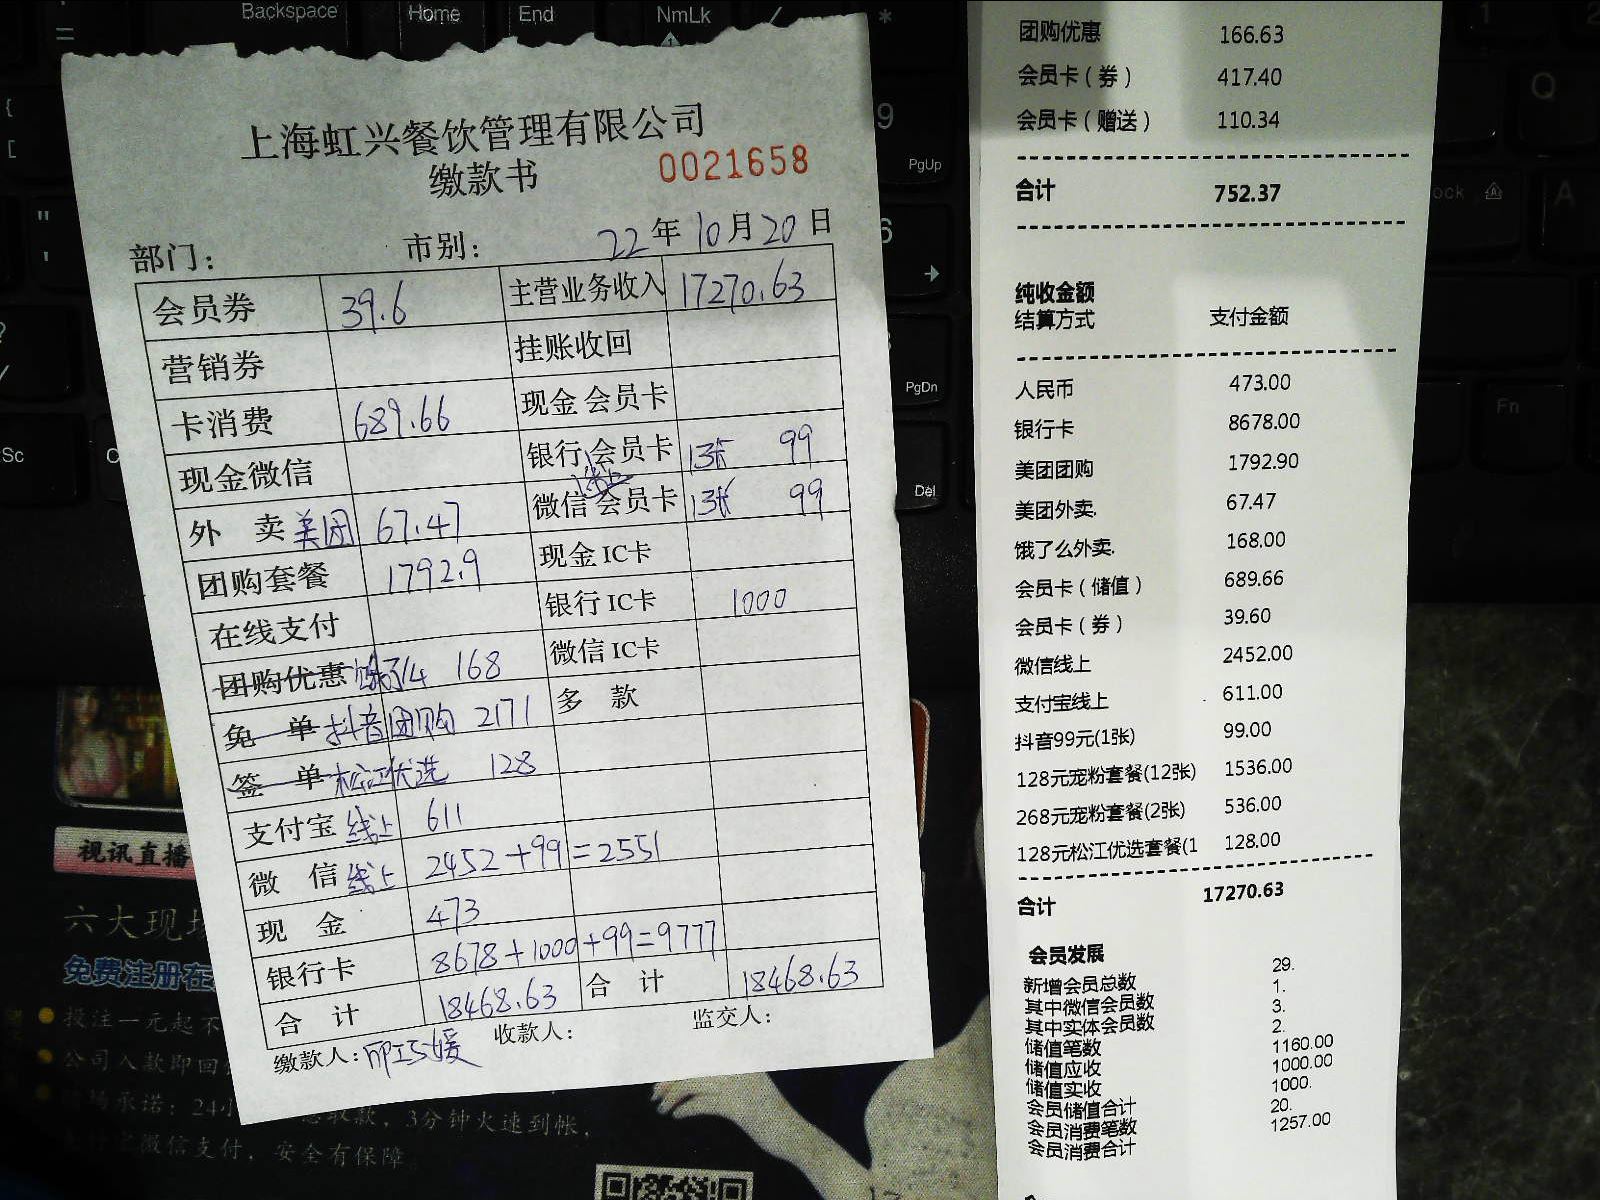 Backspace
Home
End
NmLk
PgUp
PgDn
Del
Fn
上海虹兴餐饮管理有限公司
缴款书
0021658
部门: 市别: 22年10月20日
会员券 39.6 主营业务收入 17270.63
营销券 挂账收回
卡消费 689.66 现金会员卡
现金微信 银行会员卡 1张 99
外 卖 美团 67.47 微信会员卡 1张 99
团购套餐 1792.9 现金IC卡
在线支付 银行IC卡 1000
团购优惠 饿了么 168 微信IC卡
免 单 抖音团购 2171 多 款
签 单 松江优选 128
支付宝 线上 611
微 信 线上 2452+99=2551
现 金 473
银行卡 8678+1000+99=9777
合 计 18468.63 合 计 18468.63
缴款人: 收款人: 监交人:
团购优惠 166.63
会员卡(券) 417.40
会员卡(赠送) 110.34
合计 752.37
纯收金额
结算方式 支付金额
人民币 473.00
银行卡 8678.00
美团团购 1792.90
美团外卖. 67.47
饿了么外卖. 168.00
会员卡(储值) 689.66
会员卡(券) 39.60
微信线上 2452.00
支付宝线上 611.00
抖音99元(1张) 99.00
128元宠粉套餐(12张) 1536.00
268元宠粉套餐(2张) 536.00
128元松江优选套餐(1 128.00
合计 17270.63
会员发展
新增会员总数 29.
其中微信会员数 1.
其中实体会员数 3.
储值笔数 2.
储值应收 1160.00
储值实收 1000.00
会员储值合计 1000.
会员消费笔数 20.
会员消费合计 1257.00
视讯直播
六大现场
免费注册在
投注一元起不
公司入款即回
承诺: 24小 款, 3分钟火速到帐,
微信支付, 安全有保障